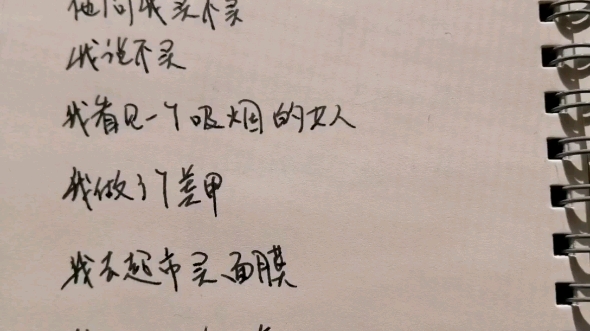 他问我买不买
我说不买
我看见一个吸烟的女人
我做了个美甲
我去超市买面膜